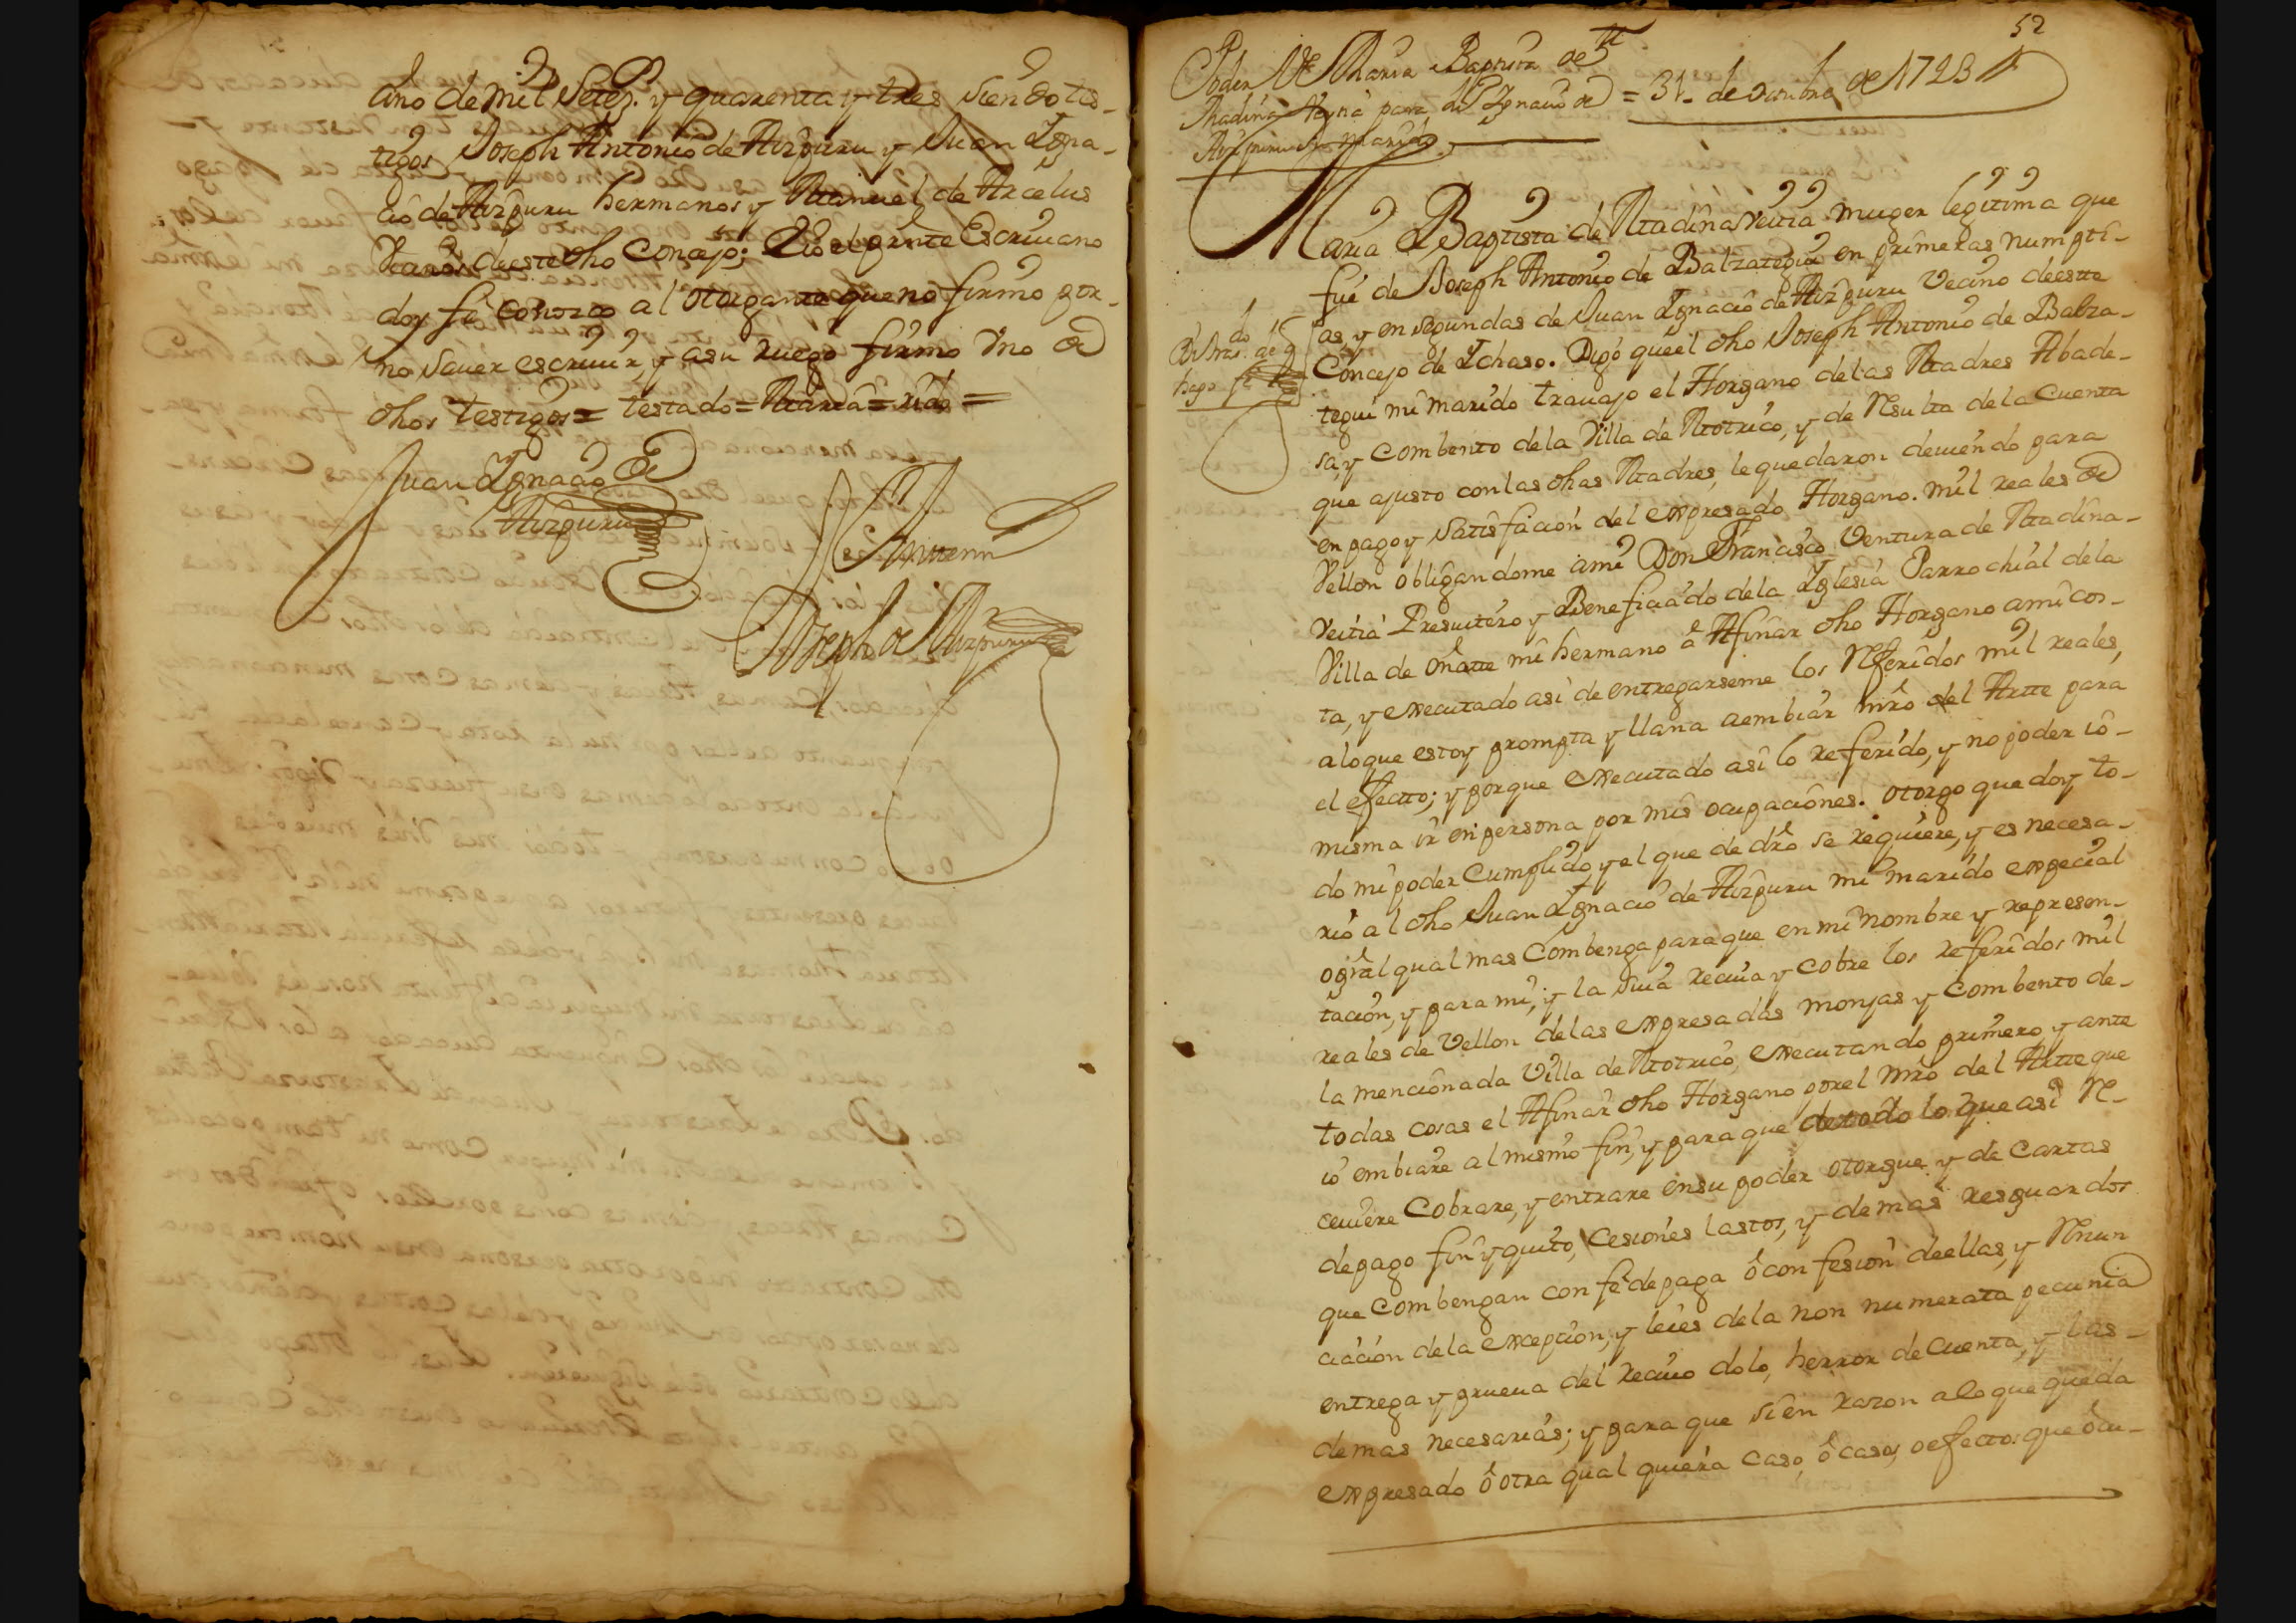 año de mil Setez.s y quarenta y tres siendo tes-
tigos Joseph Antonio de Aizpuru y Juan Igna-
cio de Aizpuru hermanos y Manuel de Arcelus
Vecinos deeste dho Concejo; E io el presnte Escriuano
doy fe conozco al otorgante que no firmo por-
no sauer escriuir y asu ruego firmo Vno de
dhos testigos = testado = Maria =
Juan Ignacio de
Aizpuru
Antemi
Joseph de Aizpuru
52
Poder Mª Maria Baptista de
Madina Veytia para Ju.º Ignacio de = 31- de 1743
Aizpuru su marido
Maria Baptista de Madina Veitia muger legitima que
fué de Joseph Antonio de Balzategui en primeras numpti-
as, y en segundas de Juan Ignacio de Aizpuru Vecino deeste
Concejo de Ichaso. Digo que el dho Joseph Antonio de Balza-
tegui mi marido trauajo el Horgano delas Madres Abade-
sa, y Combento dela Villa de Motrico, y de Resulta dela Cuenta
que ajusto conlas dhas Madres, le quedaron deuiendo para
en pago y Satisfacion del expresado Horgano. mil reales de
Vellon obligandome ami Don Francisco Ventura de Madina-
Veitia Presuitero y Beneficiado dela Iglesia Parrochial dela
Villa de Oñatte mi hermano â Afinar dho Horgano ami cos-
ta, y executado asi de entregarseme los Referidos mil reales,
alo que estoy prompta y llana aembiar mro del Arte para
el efecto; y porque executado asi lo referido, y no poder io-
misma ir enpersona por mis ocupaciones. otorgo que doy to-
do mi poder Cumplido y el que de dro se requiere, y es necesa-
rio al dho Juan Ignacio de Aizpuru mi marido expecial
o gral qual mas Combenga paraque en mi nombre y represen-
tacion, y para mi, y la suia reciua y cobre los referidos mil
reales de Vellon delas expresadas monjas y Combento de-
la mencionada Villa de Motrico, executando primero, y ante
todas cosas el Afinar dho Horgano porel mro del Arte que
io embiare al mismo fin, y para que detodo lo que asi Re-
ceuiere Cobrare, y entrare ensu poder otorgue y de Cartas
depago fin y quito, Cesiones lastos, y demas resguardos
que Combengan con fe depaga ô confesion deellas, y Renun
ciacion dela excepcion, y leies dela non numerata pecunia
entrega y prueua del reciuo dolo, herror de Cuenta, y las-
demas necesarias; y para que sien razon alo que queda
expresado ô otra qual quiera caso, ô casos, o efectos que ôcu-